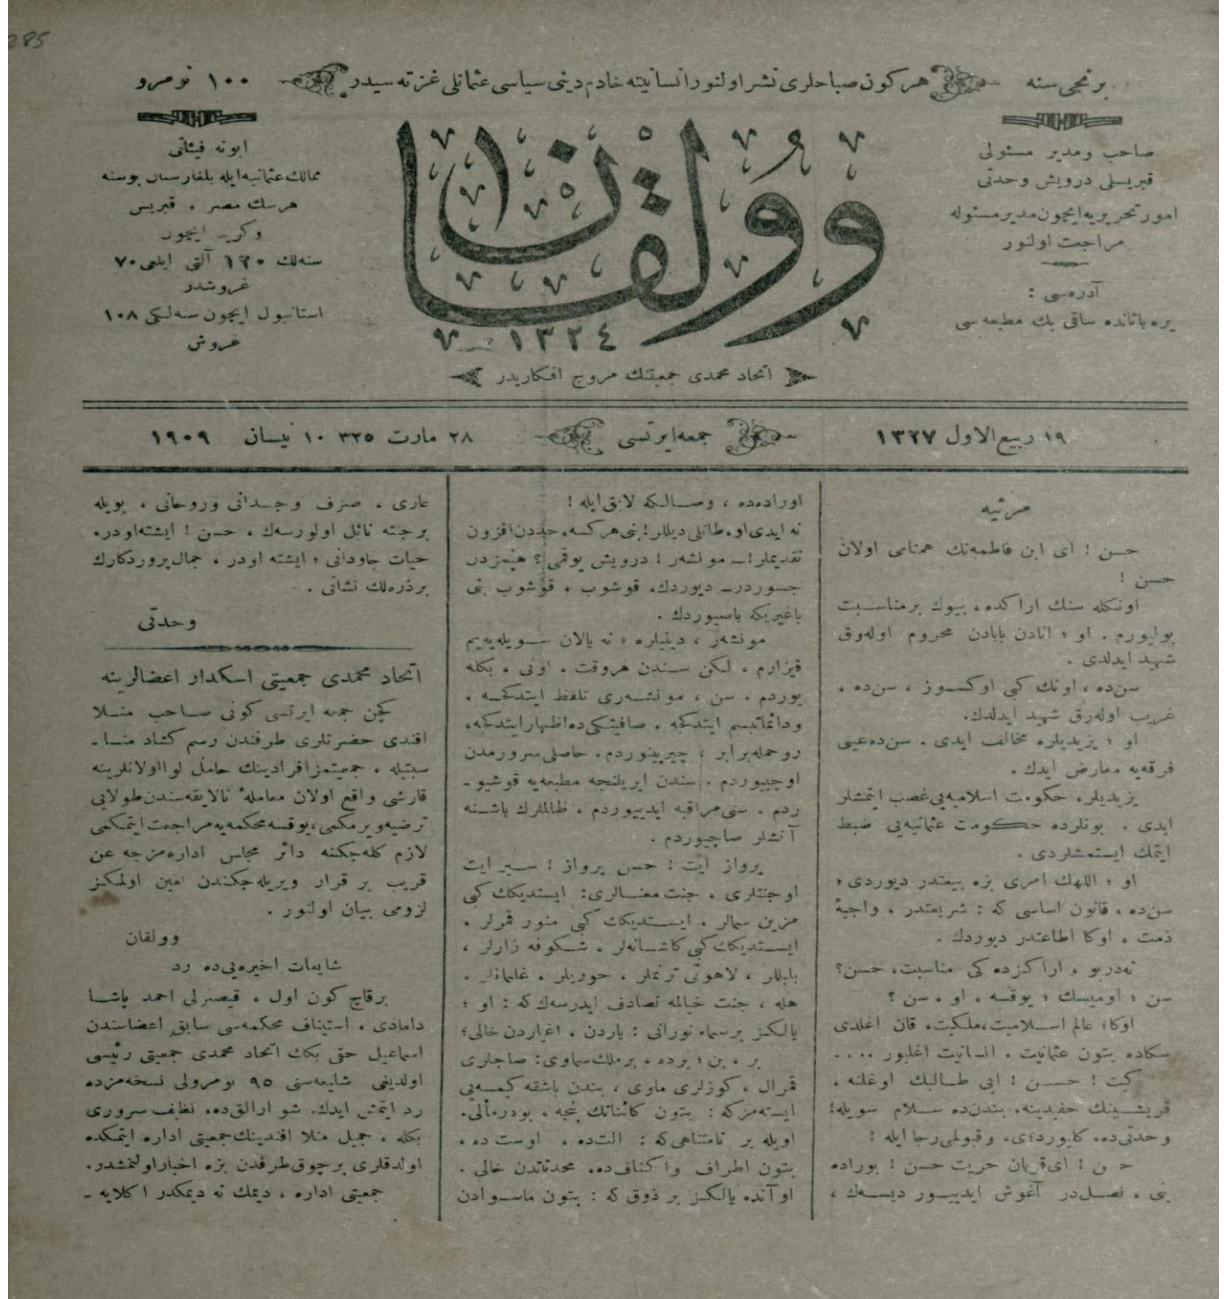 285
برنجی سنه
هركون صباحلری نشر اولنور انسانیته خادم دینی سیاسی عثمانلی غزته سیدر
۱۰۰ نومرو
صاحب ومدیر مسئولی
قبریسلی درویش وحدتی
امور تحریریه ایچون مدیر مسئوله
مراجعت اولنور
آدره‌سی :
یره باتانده ساقی بك مطبعه سی
وولقان
۱۳۲٤
اتحاد محمدی جمعیتنك مروج افكاریدر
ابونه فیئاتی
ممالك عثمانیه ایله بلغارستان بوسنه
هرسك مصر ، قبریس
وكرید ایچون
سنه‌لك ۱۲۰ آلتی ایلغی ۷۰
غروشدر
استانبول ایچون سنه‌لكی ۱۰۸
غروش
۱۹ ربیع الاول ۱۳۲۷
جمعه ایرتسی
۲۸ مارت ۳۲۵ ۱۰ نیسان ۱۹۰۹
مرثیه
حسن ! ای ابن فاطمه‌نك همنامی اولان
حسن !
اونكله سنك اراكده ، بیوك برمناسبت
بولیورم . او ؛ انادن بابادن محروم اوله‌رق
شهید ایدلدی .
سن‌ده ، اونك كبی اوكسوز ، سن‌ده ،
غریب اوله‌رق شهید ایدلدك.
او ؛ یزیدیلره مخالف ایدی . سن‌ده‌عینی
فرقه‌یه معارض ایدك .
یزیدیلر، حكومت اسلامیه‌یی غصب ایتمشلر
ایدی . بونلرده حكومت عثمانیه‌یی ضبط
ایتمك ایستمشلردی .
او ؛ اللهك امری بزه بیعتدر دیوردی ؛
سن‌ده ، قانون اساسی كه : شریعتدر ، واجبۀ
ذمت ، اوكا اطاعتدر دیوردك .
نه‌دربو ، اراكزده كی مناسبت، حسن؟
سن ؛ اومیسك ؛ یوقسه ، او ، سن ؟
اوكا؛ عالم اسلامیت،ملكیت، قان اغلدی
سكاده بتون عثمانیت ، انسانیت اغلیور ....
كیت ! حسن ! ابی طالبك اوغلنه ،
قریشینك حفیدینه، بندن‌ده سلام سویله!
وحدتی‌ده، كلیوردی، وقبولی رجا ایله !
حسن ! ای‌قربان حریت حسن ! بوراده
بنی ، نصل‌در آغوش ایدییور دیسه‌ك ،
اوراده‌ده ، وصالكه لایق ایله !
نه ایدی‌او، طاتلی دیللر! بنی هركسه، حددن‌افزون
تقدیملر!ــ مونشه‌ر ! درویش یوقمی؟ هپمزدن
جسوردرــ دیوردك. قوشوب ، قوشوب بنی
باغریكه باصیوردك .
مونشه‌ر ، دینیلره ؛ نه یالان سویله‌یه‌یم
قیزارم ، لكن سندن هروقت ، اونی ، بكله
یوردم . سن ، مونشه‌ری تلفظ ایتدكجه ،
ودائماتبسم ایتدكجه ، صافیتكی‌ده‌اظهارایتدكجه،
روحمله‌برابر ؛ چیرپینوردم. حاصلی سرورمدن
اوچیوردم . سندن ایریلنجه مطبعه‌یه قوشیوـ
ردم . سنی مراقبه ایدییوردم . ظالملرك باشنه
آتشلر صاچیوردم .
پرواز ایت ! حسن پرواز ! سیر ایت
اوجنتلری . جنت معنالری: ایستدیكك كبی
مزین سمالر . ایستدیكك كبی منور قمرلر .
ایستدیكك كبی كاشانه‌لر . شكوفه زارلر ،
بلبللر ، لاهوتی ترنملر . حوریلر . غلمانلر .
هله ، جنت خیالمه تصادف ایدرسه‌ك كه : او ؛
یالكز برسماء نورانی : یاردن ، اغیاردن خالی؛
بر ، بن؛ برده ، برملك‌سماوی: صاچلری
قمرال ، كوزلری ماوی ، بندن باشقه كیمسه‌یی
ایسته‌مزكه : بتون كائناتك نتیجه ، بودرمآلی.
اویله بر نامتناهی‌كه : التده ، اوستده،
بتون اطراف واكنافده، محدثاتدن خالی .
اوآنده یالكز بر ذوق كه : بتون ماسوادن
عاری ، صرف وجدانی وروحانی ، بویله
برجنته نائل اولورسه‌ك ، حسن ! ایشته‌اودر،
حیات جاودانی ؛ ایشته اودر ، جمال‌پروردكارك
برذره‌لك نشانی .
وحدتی
اتحاد محمدی جمعیتی اسكدار اعضالرینه
كچن جمعه ایرتسی كونی صاحب منلا
افندی حضرتلری طرفندن رسم كشاد مناـ
سبتیله ، جمعیتمزافرادینك حامل لوااولانلرینه
قارشی واقع اولان معاملۀ نالایقه‌سندن‌طولایی
ترضیه‌ویرمكمی،یوقسه‌محكمه‌یه‌مراجعت ایتمكمی
لازم كله‌جكنه دائر مجلس اداره‌مزجه عن
قریب بر قرار ویریله‌جكندن امین اولمكز
لزومی بیان اولنور .
وولقان
شایعات اخیره‌یی‌ده رد
برقاچ كون اول ، قیصرلی احمد پاشا
دامادی ، استیناف محكمه‌سی سابق اعضاسندن
اسماعیل حقی بكك اتحاد محمدی جمعیتی رئیسی
اولدیغی شایعه‌سنی ۹۵ نومرولی نسخه‌مزده
رد ایتمش ایدك. شو ارالق‌ده، نظیف سروری
بكله ، جمیل منلا افندینك‌جمعیتی اداره ایتمكده
اولدقلری برچوق‌طرفدن بزه اخباراولنمشدر.
جمعیتی اداره ، دیمك نه دیمكدر اكلایه ـ